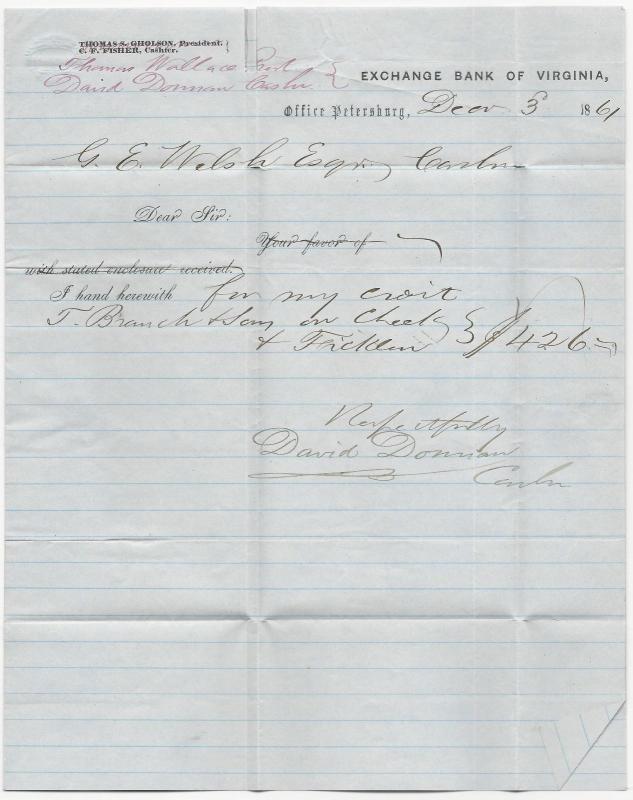 THOMAS S. GHOLSON, President.
C. F. FISHER, Cashier.
Thomas Wallace Prest
David Donnan Cashr.
EXCHANGE BANK OF VIRGINIA,
Office Petersburg, Decr 3 1861
G. E. Welsh Esqr Cashr
Dear Sir:
Your favor of
with stated enclosure received.
I hand herewith for my credit
T. Branch & Sons on Cheek
& Ficklen $426
Respectfully
David Donnan
Cashr